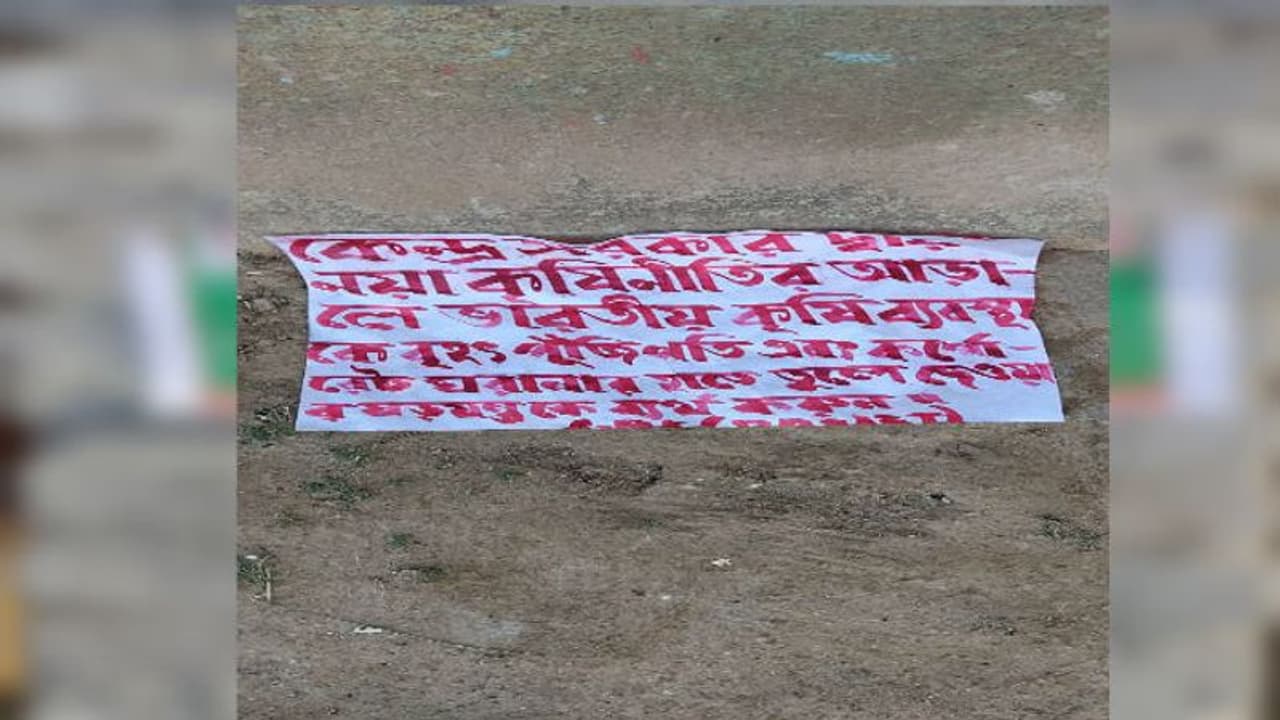 কেন্দ্র সরকার দ্বারা
নয়া কৃষিনীতির আড়া-
লে ভারতীয় কৃষিব্যবস্থা
কে বৃহৎ পুঁজিপতি এবং কর্পো-
রেট ঘরানার হাতে তুলে দেওয়া
র ষড়যন্ত্রকে ব্যর্থ করুন।